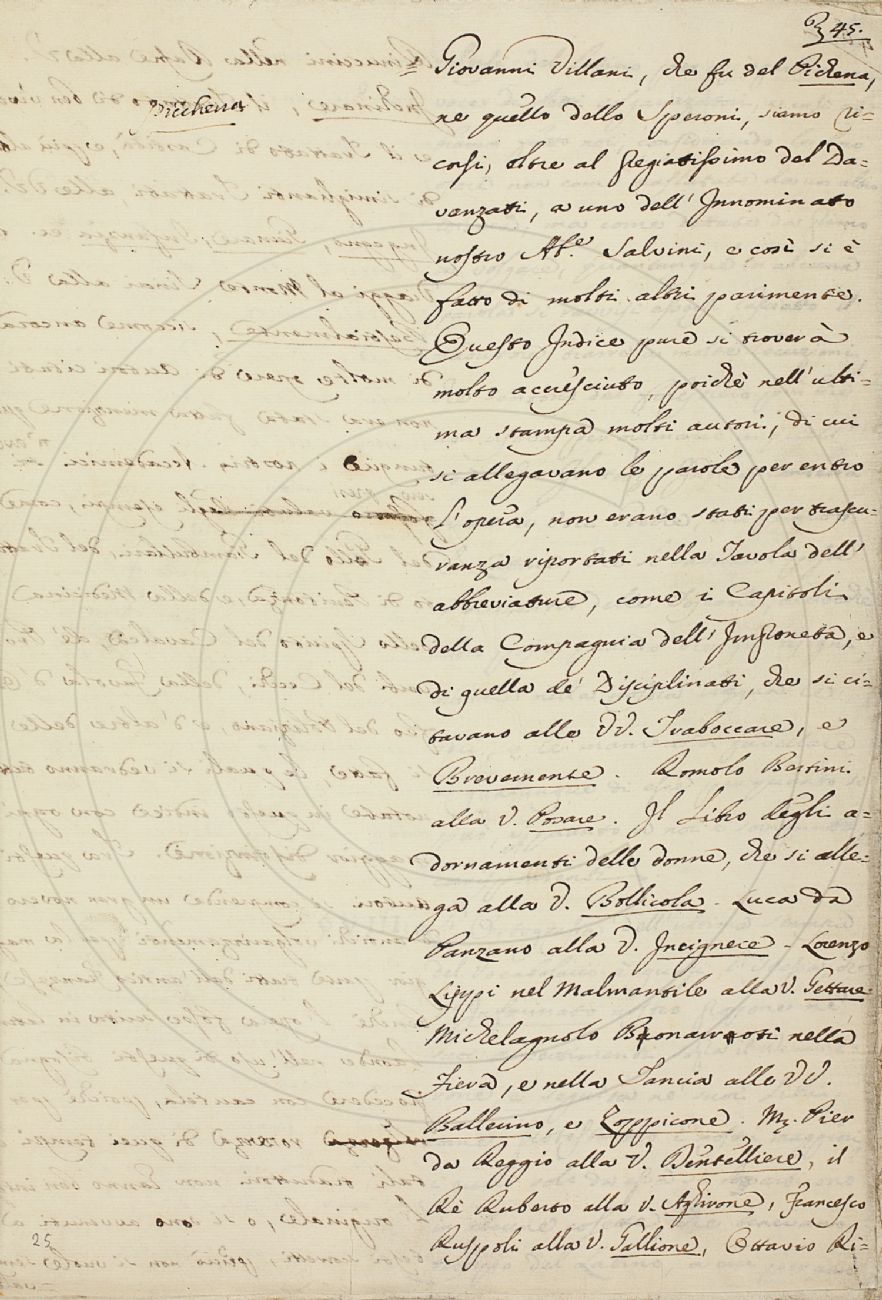 45.
Giovanni Villani, che fu del Pichena,
Piccherna
ne quello dello Speroni, siamo ri-
corsi, oltre al pregiatissimo del Da-
vanzati, a uno dell' Innominato
nostro Ab.e Salvini, e così si è
fatto di molti altri parimente.
Questo Indice pure si troverà
molto accresciuto, poichè nell' ulti-
ma stampa molti autori, di cui
si allegavano le parole per entro
l'opera, non erano stati per trascu-
ranza riportati nella Tavola dell'
abbreviature, come i Capitoli
della Compagnia dell' Impruneta, e
di quella de' Disciplinati, che si ci-
tavano alle VV. Traboccare, e
Brevemente. Romolo Bertini
alla V. Posare. Il Libro degli a-
dornamenti delle donne, che si alle-
ga alla V. Bollicola. Luca da
Panzano alla V. Incignere. Lorenzo
Lippi nel Malmantile alla V. Gettare.
Michelagnolo Bonarroti nella
Fiera, e nella Tancia alle VV.
Ballerino, e Zoppicone. M. Pier
da Reggio alla V. Bentelliere, il
Rè Ruberto alla V. Francesco
Ruspoli alla V. Gallione, Ottavio Ri-
25